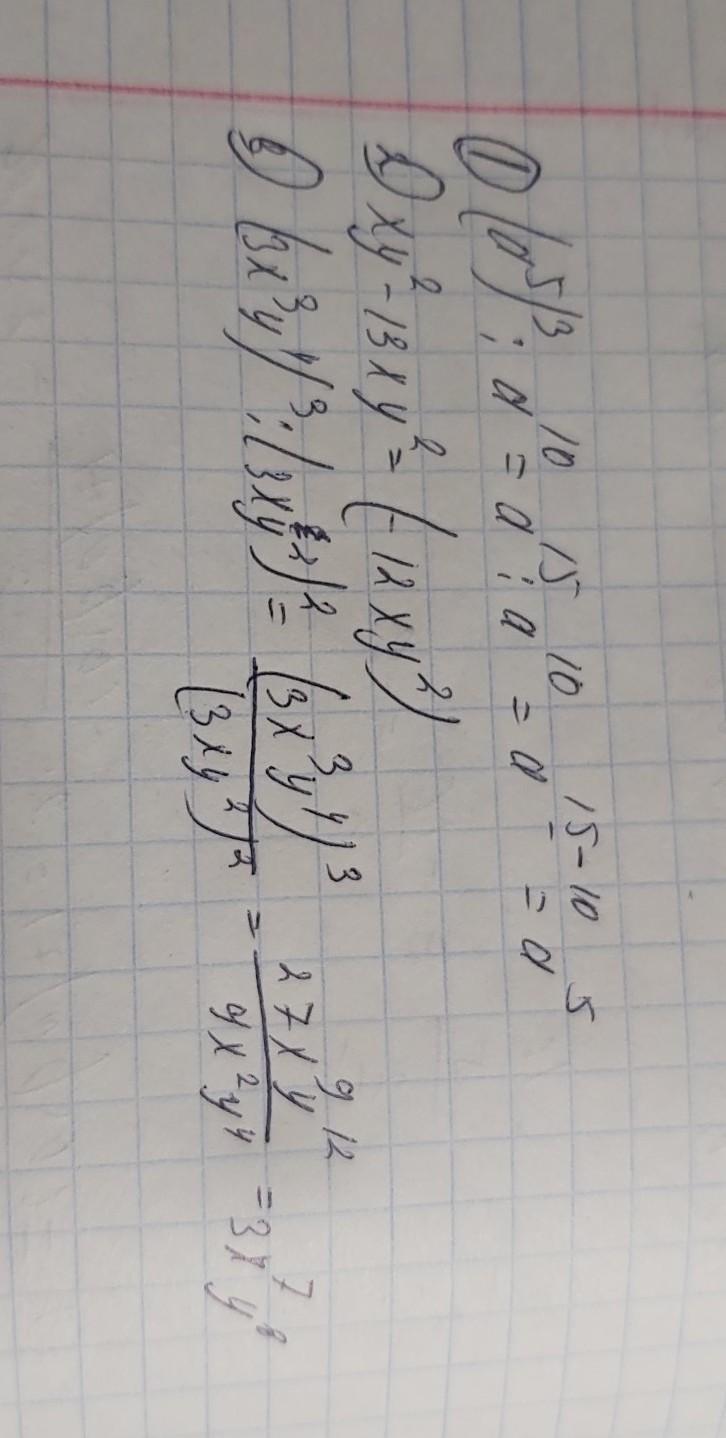 1) (a⁵)³ : a¹⁰ = a¹⁵ : a¹⁰ = a¹⁵⁻¹⁰ = a⁵
2) xy² - 13xy² = (-12xy²)
(3x³y⁴)³ : (3xy²)² = (3x³y⁴)³ / (3xy²)² = 27x⁹y¹² / 9x²y⁴ = 3x⁷y⁸